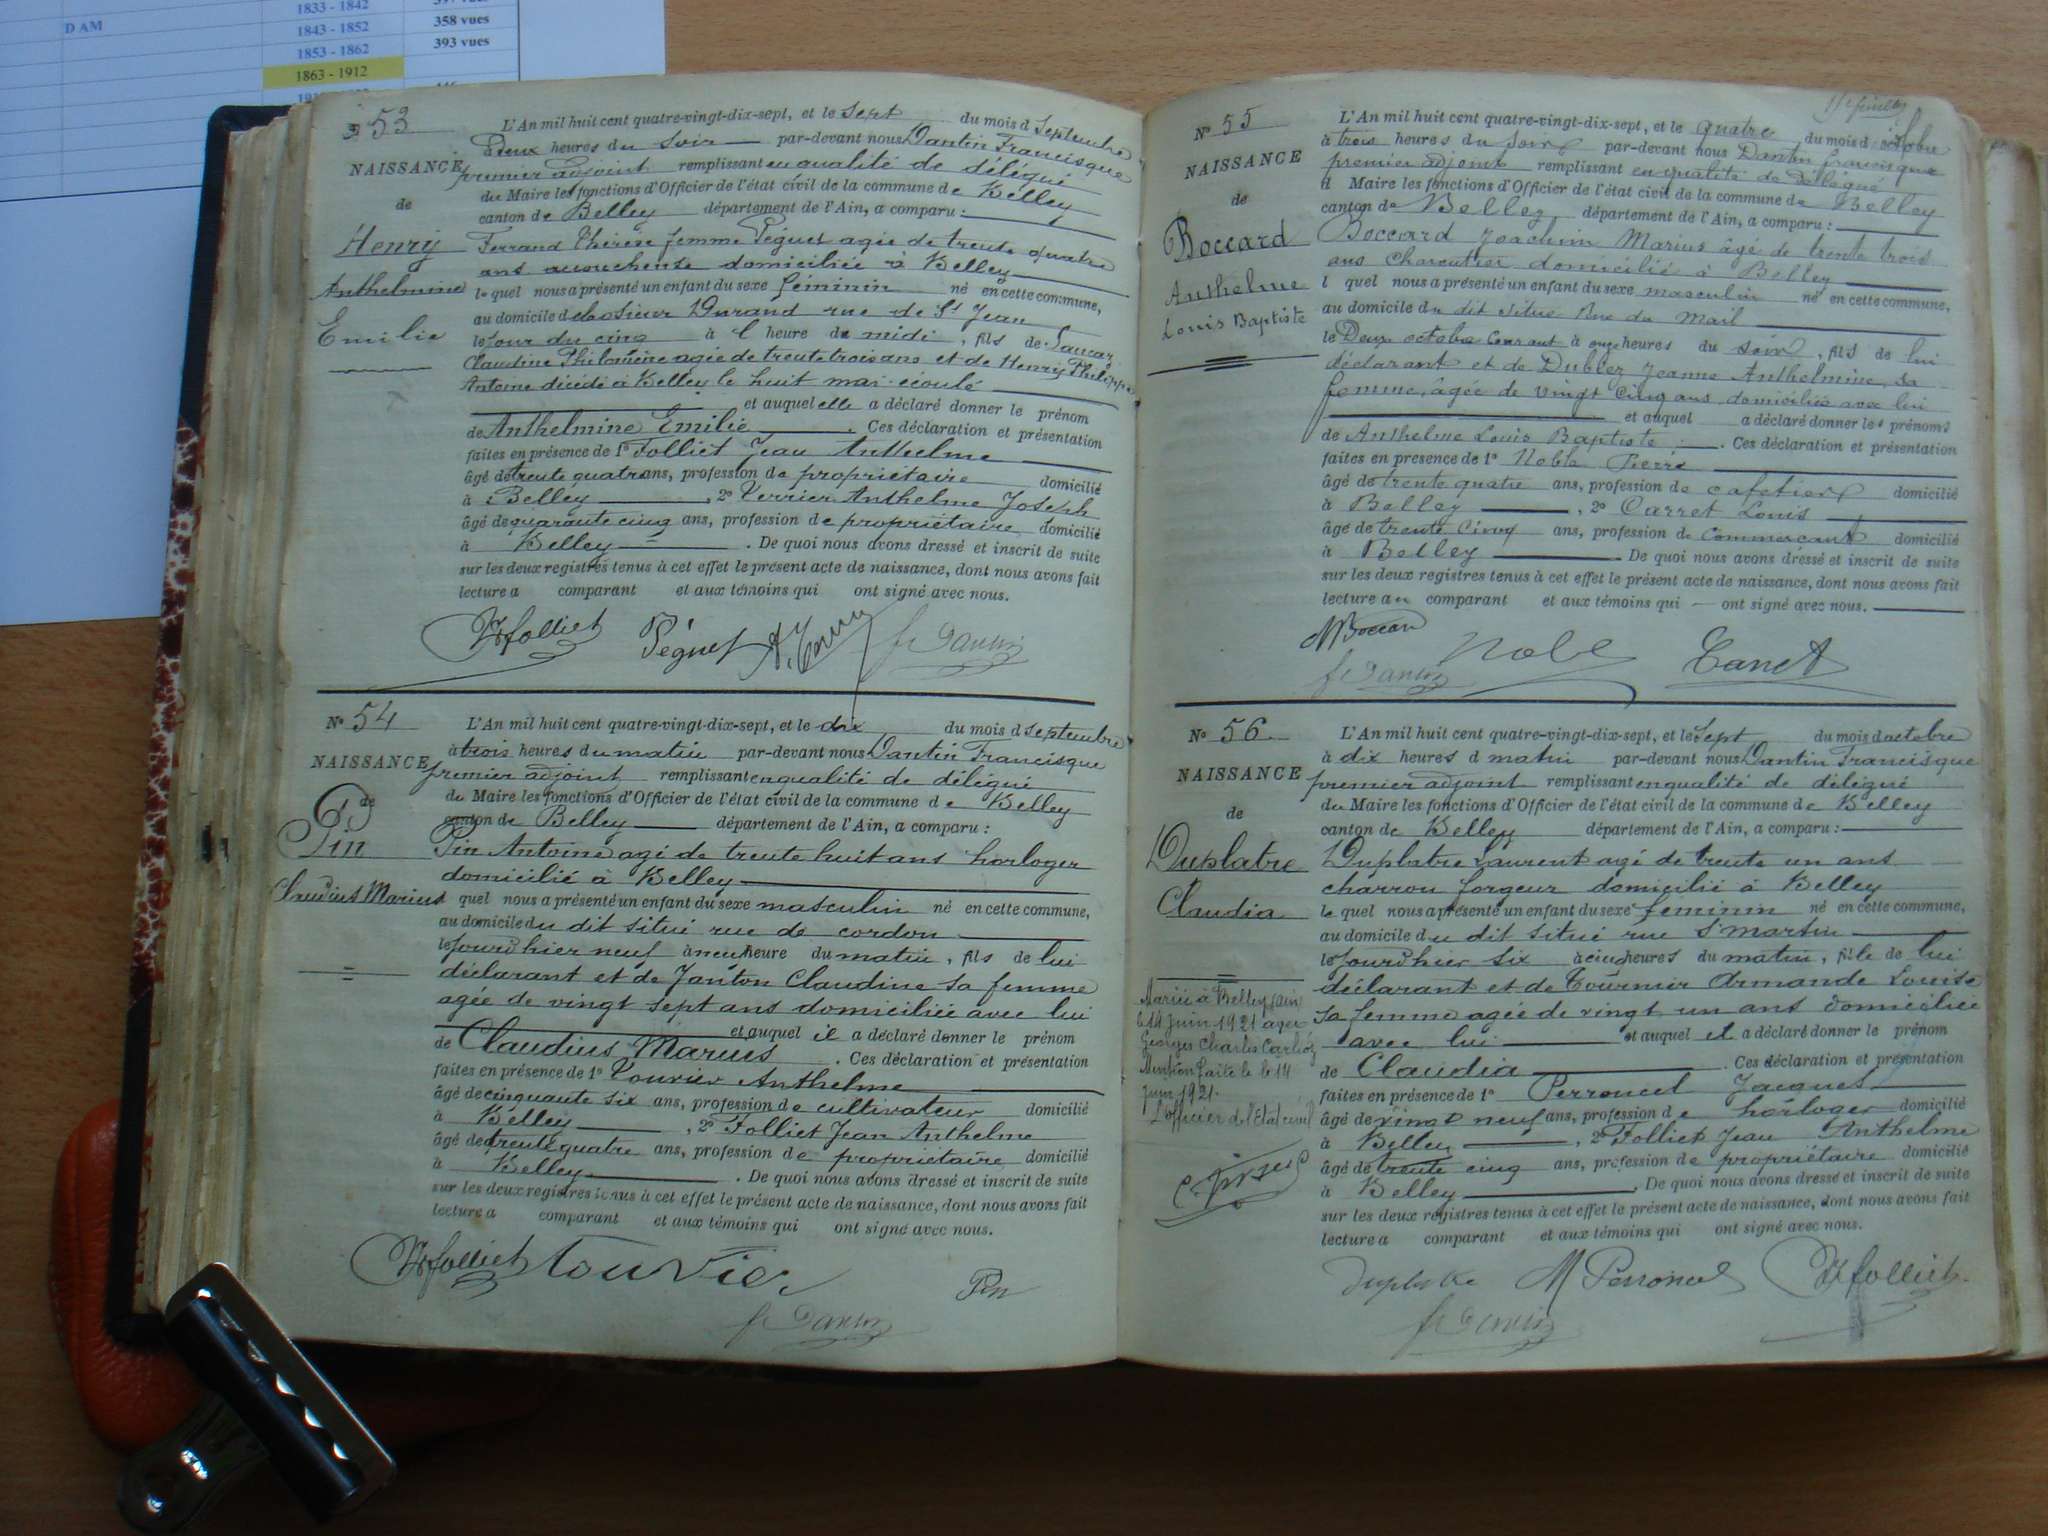 1833 - 1842
397 vues
D AM
1843 - 1852
358 vues
1853 - 1862
393 vues
1863 - 1912
N° 53
NAISSANCE
de
Henry
Anthelmine
Emilie
L'An mil huit cent quatre-vingt-dix-sept, et le sept du mois d septembre
à deux heures du soir par-devant nous Dantin Francisque
premier adjoint remplissant en qualité de délégué
du Maire les fonctions d'Officier de l'état civil de la commune de Belley
canton de Belley département de l'Ain, a comparu :
Ferrand Thérèse femme Péguet agée de trente quatre
ans accoucheuse domiciliée à Belley
le quel nous a présenté un enfant du sexe féminin né en cette commune,
au domicile de Durand rue de St Jean
le jour du cinq à 1 heure du midi, fils de
Claudine Philomène agée de trente trois ans et de Henry Philippe
Antoine décédé à Belley le huit mai écoulé
et auquel elle a déclaré donner le prénom
de Anthelmine Emilie. Ces déclaration et présentation
faites en présence de 1° Folliet Jean Anthelme
âgé de trente quatre ans, profession de propriétaire domicilié
à Belley, 2° Verrier Anthelme Joseph
âgé de quarante cinq ans, profession de propriétaire domicilié
à Belley. De quoi nous avons dressé et inscrit de suite
sur les deux registres tenus à cet effet le présent acte de naissance, dont nous avons fait
lecture a comparant et aux témoins qui ont signé avec nous.
folliet Péguet fr Dantin
N° 54
NAISSANCE
de
Pin
Claudius Marius
L'An mil huit cent quatre-vingt-dix-sept, et le dix du mois d septembre
à trois heures du matin par-devant nous Dantin Francisque
premier adjoint remplissant en qualité de délégué
du Maire les fonctions d'Officier de l'état civil de la commune de Belley
canton de Belley département de l'Ain, a comparu :
Pin Antoine agé de trente huit ans horloger
domicilié à Belley
l quel nous a présenté un enfant du sexe masculin né en cette commune,
au domicile du dit situé rue de cordon
le jour d'hier neuf à neuf heure du matin, fils de lui
déclarant et de Janton Claudine sa femme
agée de vingt sept ans domiciliée avec lui
et auquel il a déclaré donner le prénom
de Claudius Marius. Ces déclaration et présentation
faites en présence de 1° Touvier Anthelme
âgé de cinquante six ans, profession de cultivateur domicilié
à Belley, 2° Folliet Jean Anthelme
âgé de trente quatre ans, profession de propriétaire domicilié
à Belley. De quoi nous avons dressé et inscrit de suite
sur les deux registres tenus à cet effet le présent acte de naissance, dont nous avons fait
lecture a comparant et aux témoins qui ont signé avec nous.
folliet touvier Pin
fr Dantin
N° 55
NAISSANCE
de
Boccard
Anthelme
Louis Baptiste
L'An mil huit cent quatre-vingt-dix-sept, et le quatre du mois d'octobre
à trois heures du soir par-devant nous Dantin francisque
premier adjoint remplissant en qualité de délégué
d Maire les fonctions d'Officier de l'état civil de la commune de Belley
canton de Belley département de l'Ain, a comparu :
Boccard Joachim Marius âgé de trente trois
ans charcutier domicilié à Belley
l quel nous a présenté un enfant du sexe masculin né en cette commune,
au domicile du dit situé Rue du Mail
le Deux octobre courant à onze heures du soir, fils de lui
déclarant et de Dublez Jeanne Anthelmine, sa
femme, âgée de vingt cinq ans, domiciliée avec lui
et auquel a déclaré donner les prénoms
de Anthelme Louis Baptiste. Ces déclaration et présentation
faites en présence de 1° Noble Pierre
âgé de trente quatre ans, profession de cafetier domicilié
à Belley, 2° Carret Louis
âgé de trente cinq ans, profession de commerçant domicilié
à Belley. De quoi nous avons dressé et inscrit de suite
sur les deux registres tenus à cet effet le présent acte de naissance, dont nous avons fait
lecture au comparant et aux témoins qui ont signé avec nous.
MBoccard
fr Dantin Noble
N° 56
NAISSANCE
de
Duplatre
Claudia
Marié à Belley (Ain)
le 14 Juin 1921 avec
Georges Charles Carlioz
Mention faite le le 14
Juin 1921.
L'officier de l'Etat civil
L'An mil huit cent quatre-vingt-dix-sept, et le sept du mois d octobre
à dix heures d matin par-devant nous Dantin Francisque
premier adjoint remplissant en qualité de délégué
du Maire les fonctions d'Officier de l'état civil de la commune de Belley
canton de Belley département de l'Ain, a comparu :
Duplatre Laurent agé de trente un ans
charron forgeur domicilié à Belley
le quel nous a présenté un enfant du sexe féminin né en cette commune,
au domicile du dit situé rue St martin
le jour d'hier six à cinq heures du matin, fille de lui
déclarant et de Tournier Armande Louise
sa femme agée de vingt un ans domiciliée
avec lui et auquel il a déclaré donner le prénom
de Claudia. Ces déclaration et présentation
faites en présence de 1° Perroncel Jacques
âgé de vingt neuf ans, profession de horloger domicilié
à Belley, 2° Folliet Jean Anthelme
âgé de trente cinq ans, profession de propriétaire domicilié
à Belley. De quoi nous avons dressé et inscrit de suite
sur les deux registres tenus à cet effet le présent acte de naissance, dont nous avons fait
lecture a comparant et aux témoins qui ont signé avec nous.
Duplatre M Perroncel folliet
fr Dantin